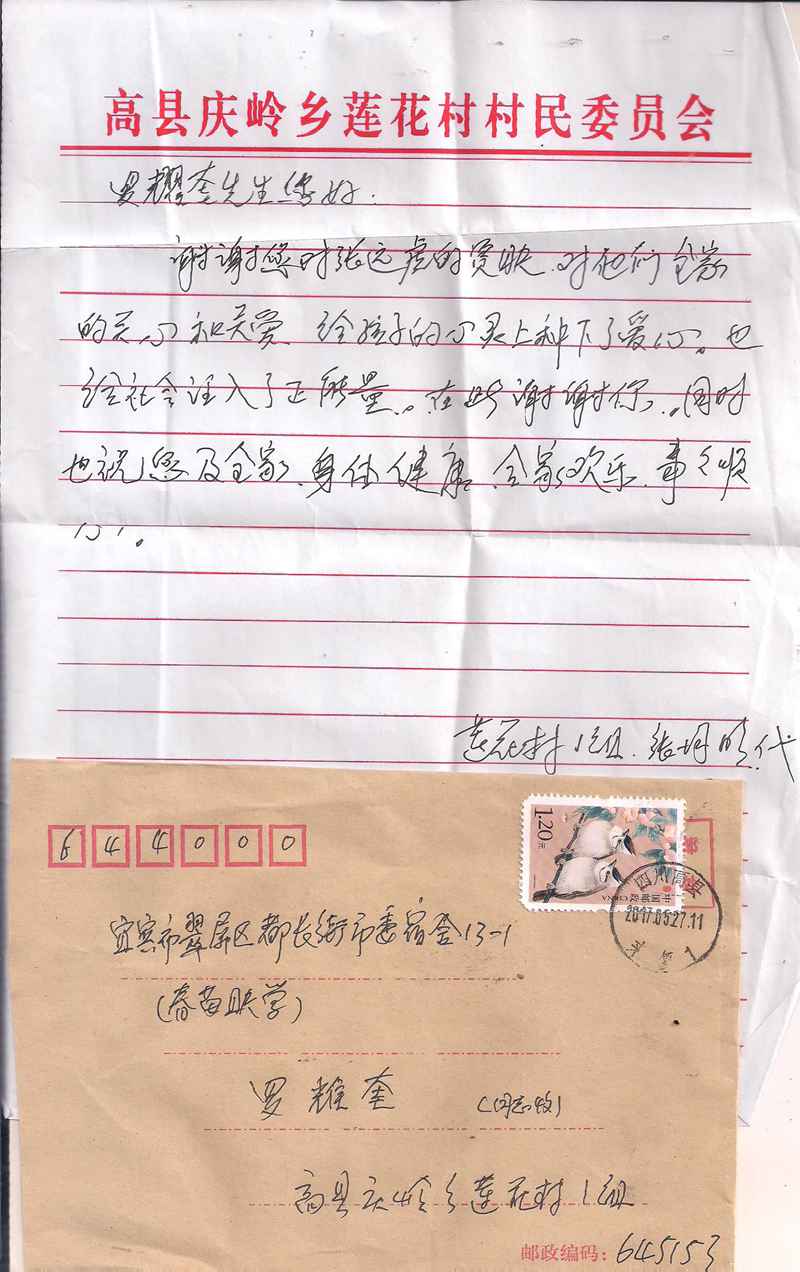 高县庆岭乡莲花村村民委员会
罗耀奎先生您好.
谢谢您对张远虎的资助、对他们全家
的关心和关爱 给孩子的心灵上种下了爱心。也
给社会注入了正能量。在此谢谢你。同时
也祝您及全家、身体健康、全家欢乐、事々顺
心。
莲花村1组、张
644000
1.20元
中国邮政 CHINA
四川高县
2017.05.27.11
宜宾市翠屏区都长街市委宿舍13-1
(春苗助学)
罗耀奎 (同志收)
高县庆岭乡莲花村1组
邮政编码: 645153